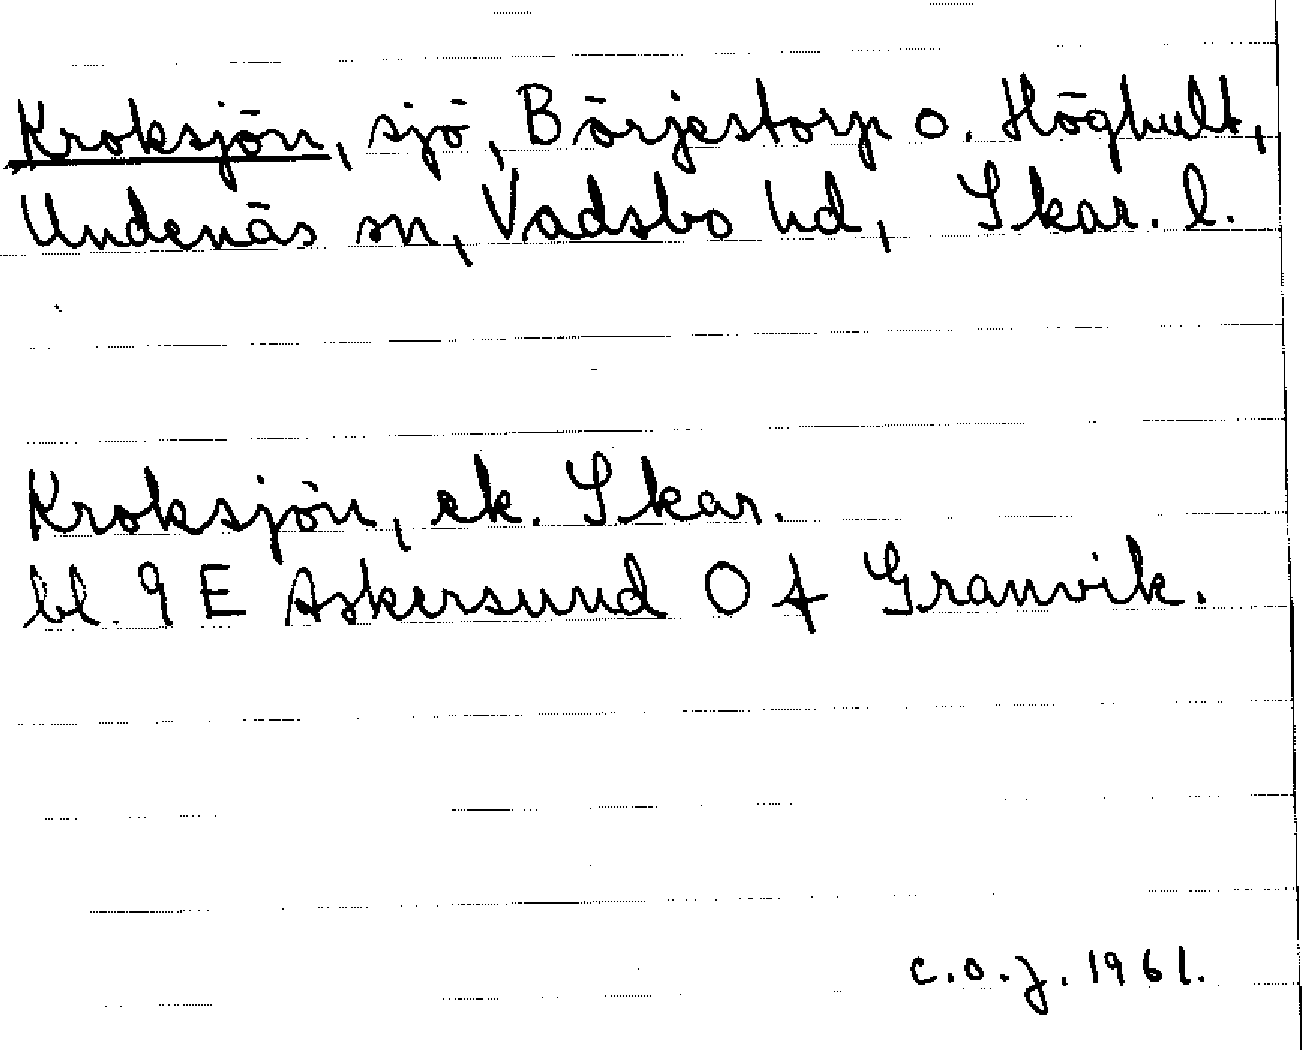 Kroksjön, sjö, Börjestorp o. Höghult,
Undenäs sn, Vadsbo hd, Skar. l.
Kroksjön, ek. Skar.
bl. 9 E Askersund O f Granvik.
C.O.J. 1961.